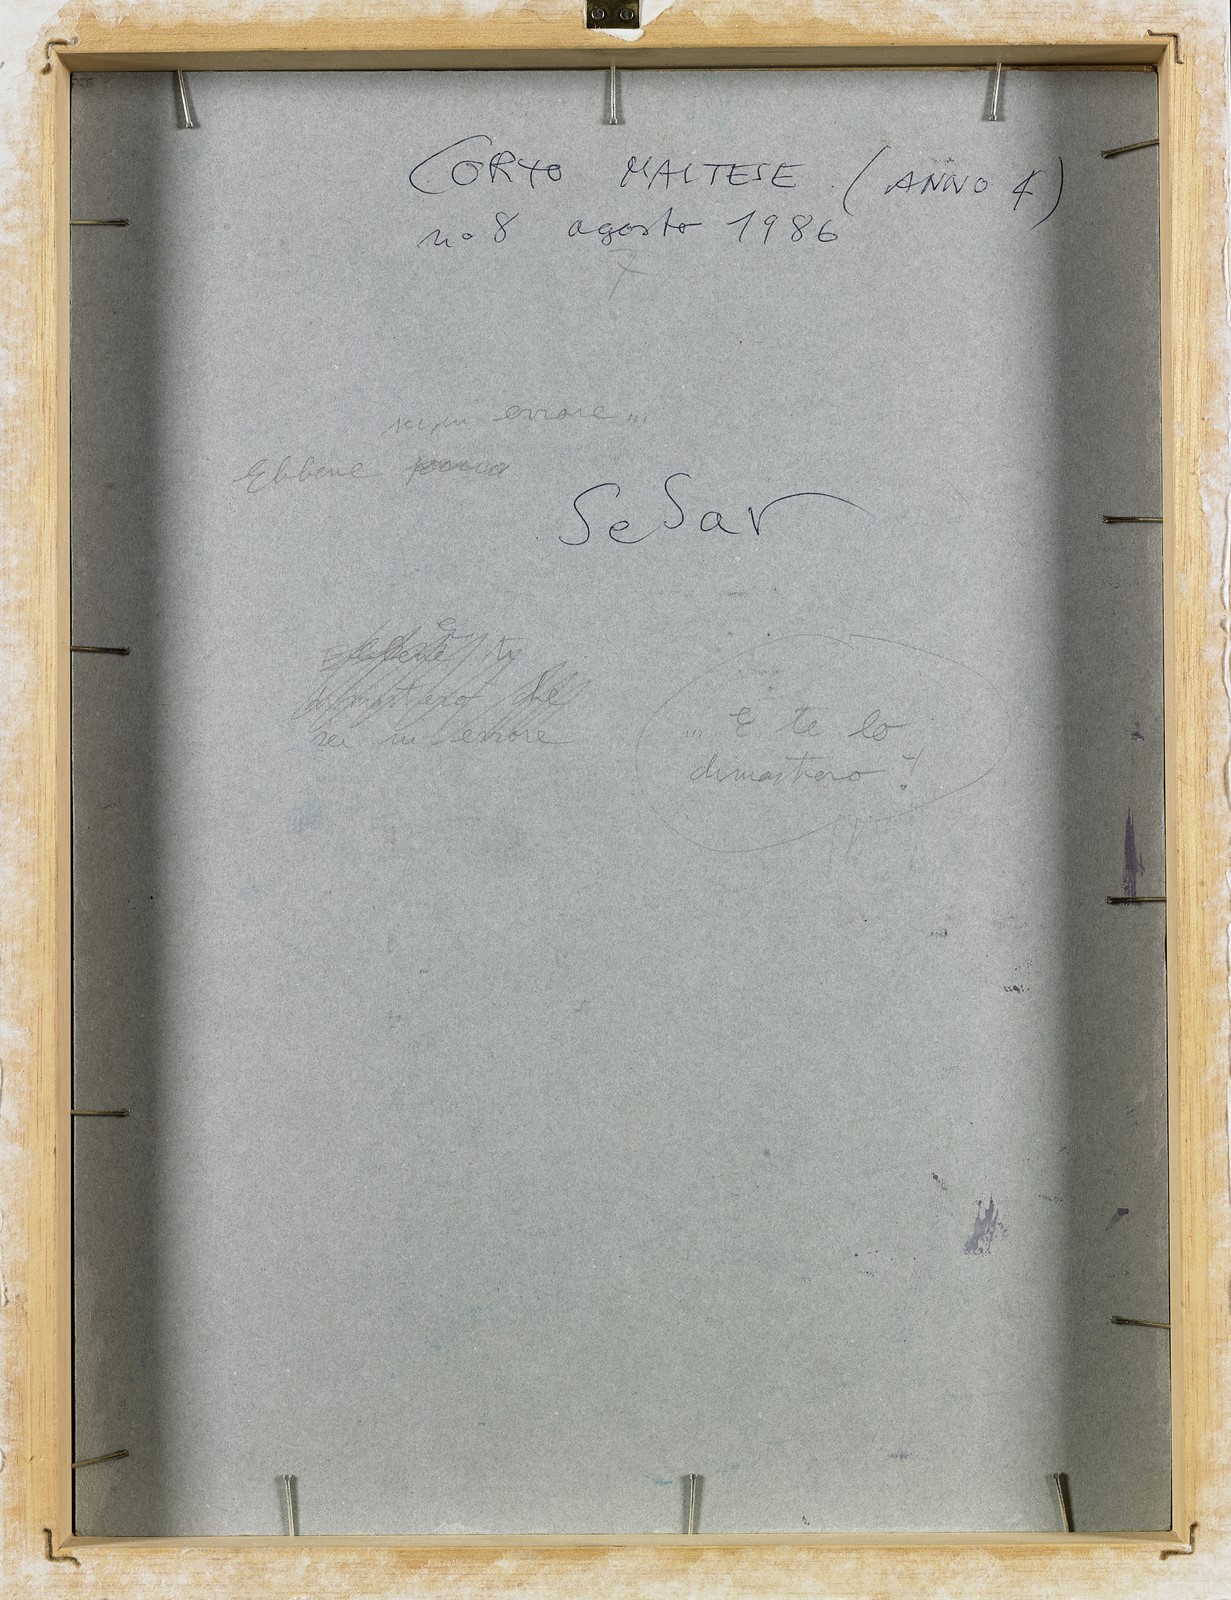 CORTO MALTESE (ANNO 4)
no 8 agosto 1986
sei in errore...
Ebbene
SeSar
dimostrerò che
sei in errore
... E te lo
dimostrero!